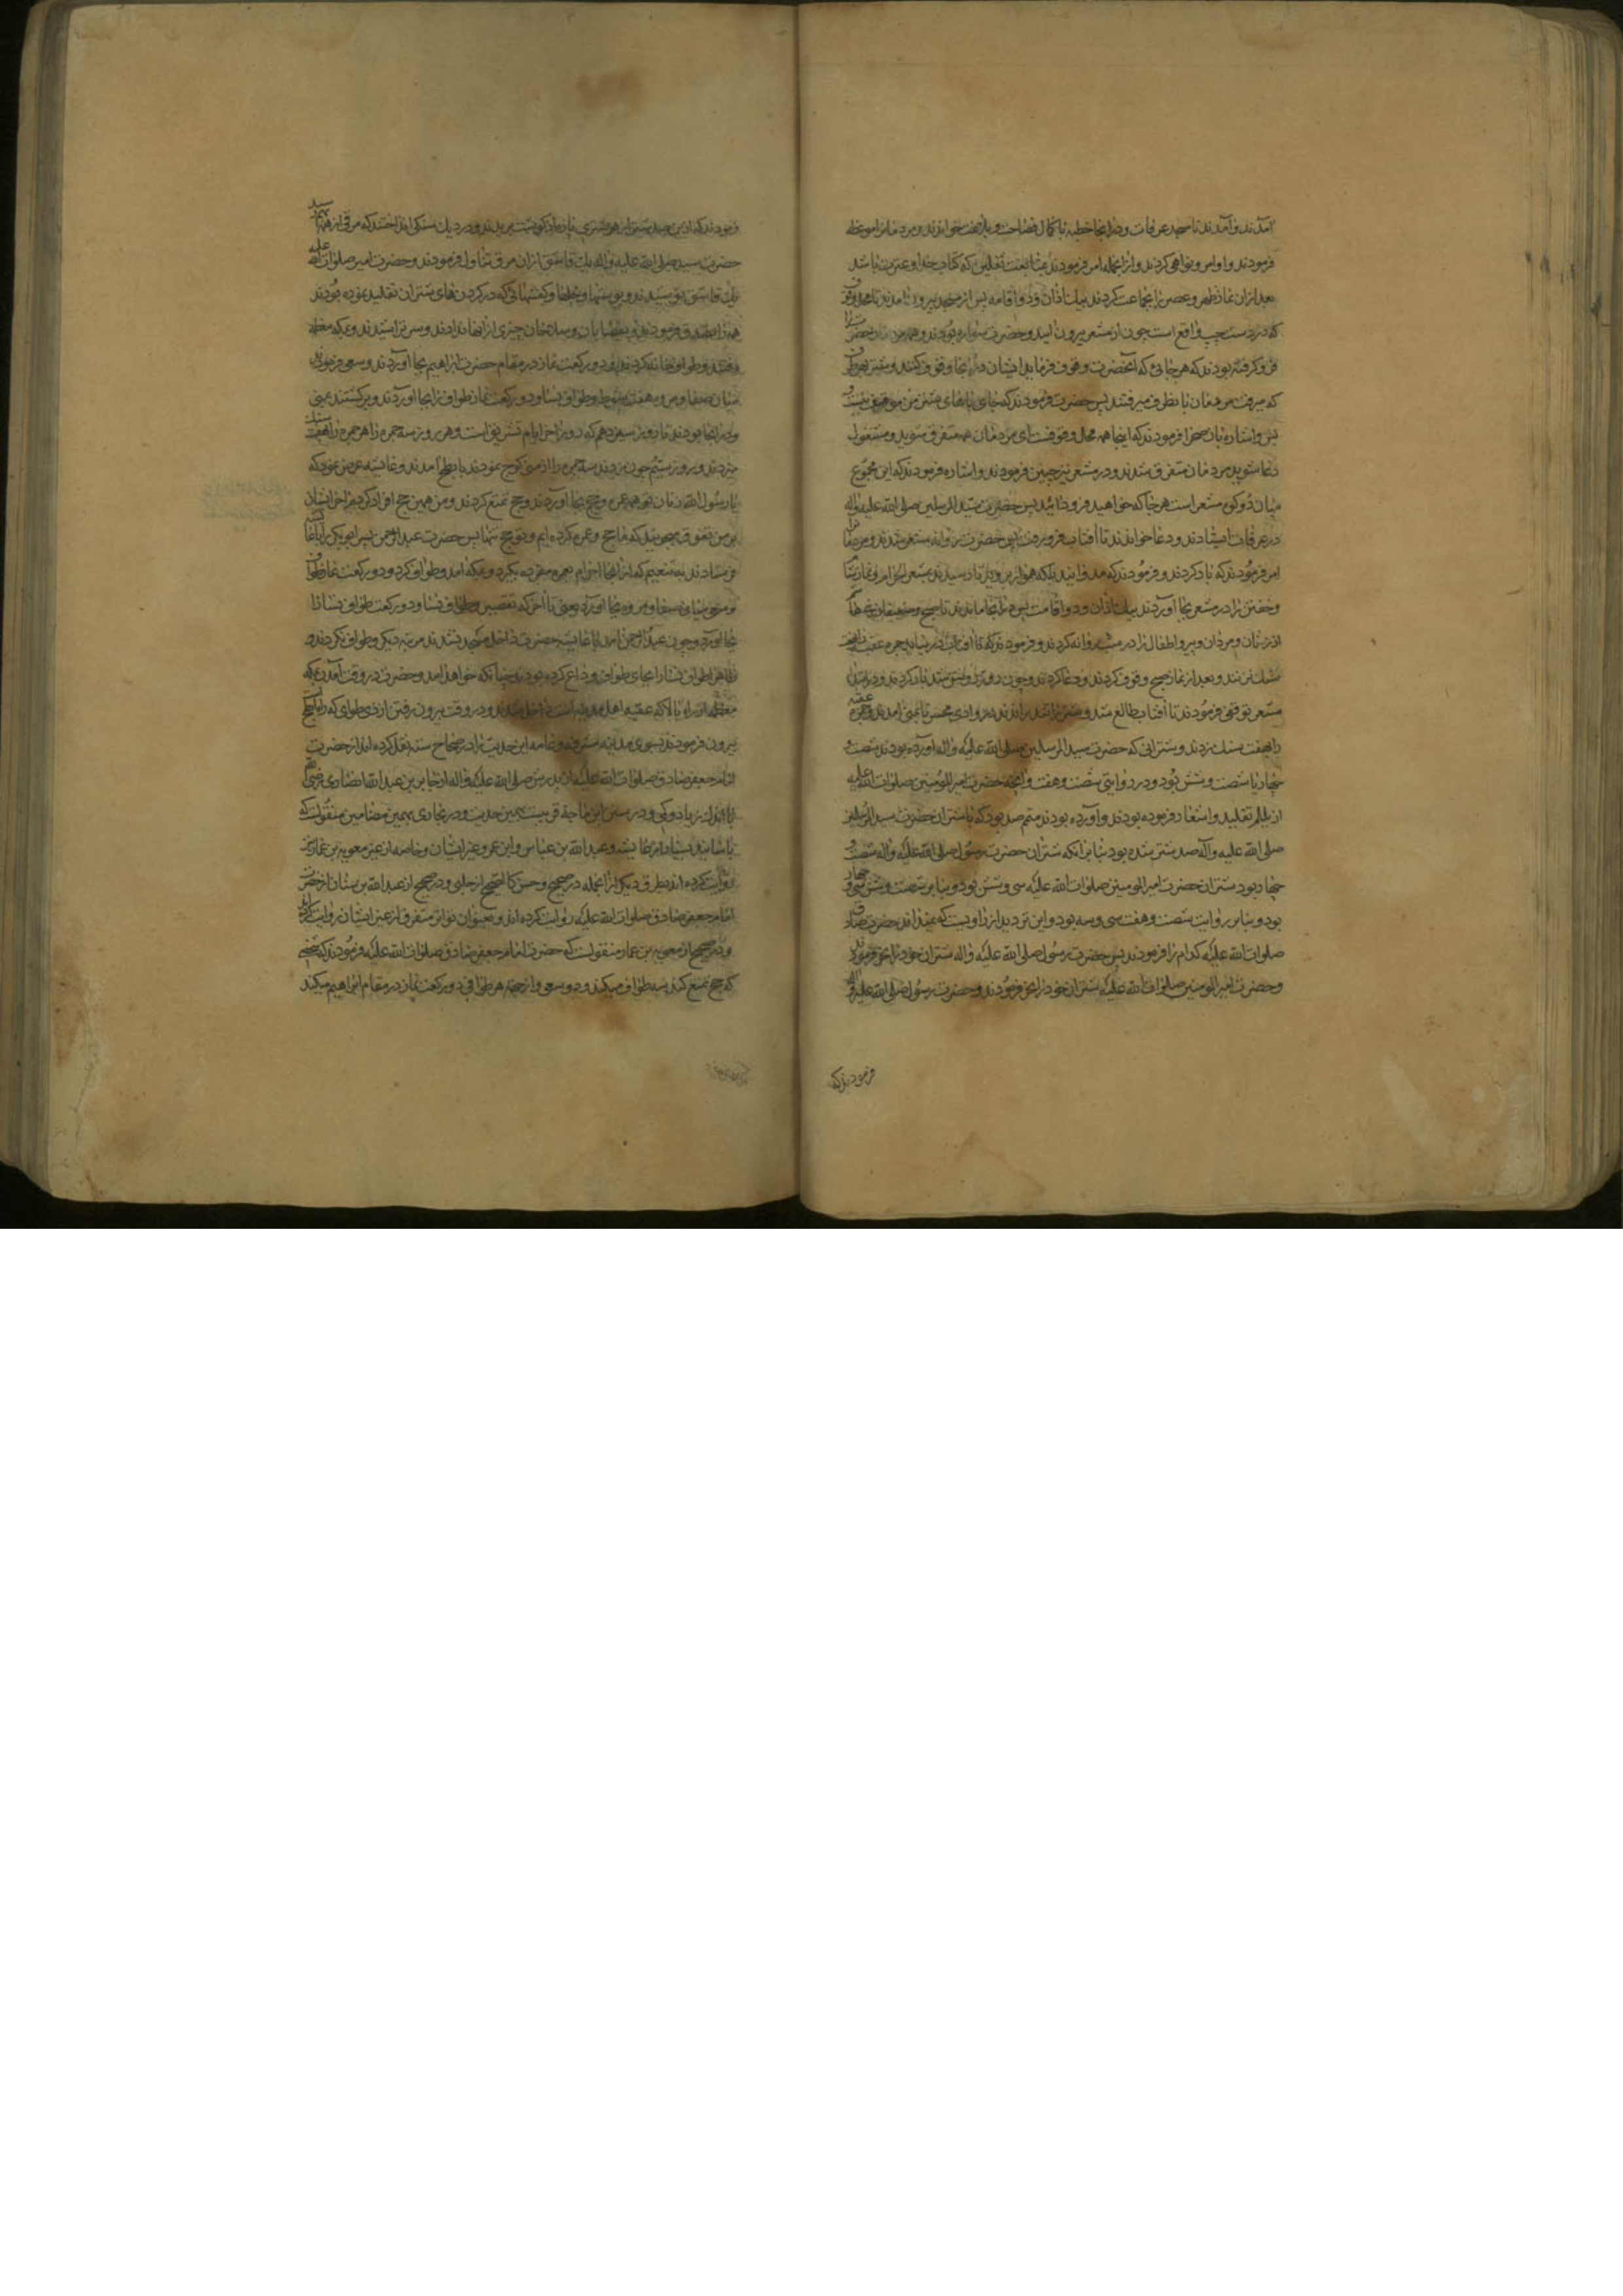 آمدند و آمدند تا مسجد عرفات و در آنجا خطبه با کمال فصاحت و بلاغت خواندند و مردمان را موعظه
فرمودند و اوامر و نواهی کردند و از آنجمله امر فرمودند بمتابعت ثقلین که کتاب خدا و عترت باشد
بعد از آن نماز ظهر و عصر را بجماعت کردند بیک اذان و دو اقامه پس از مسجد بیرون آمدند تا محل وقوف
که در دست چپ واقع است چون از مشعر بیرون آیند و حضرت سواره بودند و همه مردمان حضرت را
فرو کرفته بودند که هر جائی که آنحضرت وقوف فرماید ایشان در آنجا وقوف کنند و شتر بهر طرف
که میرفت مردمان بآن طرف میرفتند پس حضرت فرمودند که جای پاهای شتر من موقف نیست
پس و اشاره بآن صحرا فرمودند که اینجا همه محل وقوفست ای مردمان همه متفرق شوید و مشغول
دعا شوید مردمان متفرق شدند و در مشعر نیز چنین فرمودند و اشاره فرمودند که این مجموع
میان دو کوه مشعر است هر جا که خواهید فرود آئید پس حضرت سید المرسلین صلی الله علیه و آله
در عرفات ایستادند و دعا خواندند تا آفتاب فرو رفت پس حضرت روانه مشعر شدند و مردمان را
امر فرمودند که بار کردند و فرمودند که مدوانید بلکه هموار بروید تا رسیدند بمشعر الحرام و نماز شام
و خفتن را در مشعر بجا آوردند بیک اذان و دو اقامت پس در آنجا ماندند تا صبح و ضعیفان بنی هاشم
از زنان و مردان و پیر و اطفال را در شب روانه کردند و فرمودند که تا آفتاب در نیاید جمره عقبه را بهفت
سنک نزنند و بعد از نماز صبح وقوف کردند و دعا کردند و چون روز روشن شد بار کردند و در ابتدای
مشعر توقفی فرمودند تا آفتاب طالع شد و شتر راندند در وادی محسر تا بمنی آمدند و جمره عقبه
را بهفت سنک زدند و شترانی که حضرت سید المرسلین صلی الله علیه و آله آورده بودند شصت و
چهار یا شصت و شش بود و در روایتی شصت و هفت و آنچه حضرت امیر المؤمنین صلوات الله علیه
از یلملم تقلید و اشعار فرموده بودند و آورده بودند متمم صد بود که با شتران حضرت سید المرسلین
صلی الله علیه و آله صد شتر شده بود بنا بر آنکه شتران حضرت رسول صلی الله علیه و آله شصت و
چهار بود شتران حضرت امیر المومنین صلوات الله علیه سی و شش بود و بنا بر شصت و شش سی و چهار
بود و بنا بر روایت شصت و هفت سی و سه بود و این تردید از راویست که نمیداند حضرت صادق
صلوات الله علیه کدام را فرمودند پس حضرت رسول صلی الله علیه و آله شتران خود را نحر فرمودند
و حضرت امیر المومنین صلوات الله علیه شتران خود را نحر فرمودند و حضرت رسول صلی الله علیه و آله
فرمودند که
فرمودند که از این صد شتر از هر شتری پاره گوشت بریدند و در دیک سنکی انداختند که مرقی از همه بهم رسید
حضرت سید صلی الله علیه و آله یک قاشق از آن مرق تناول فرمودند و حضرت امیر صلوات الله علیه
یک قاشق نوشیدند و پوستها و جلها و کفشهائی که در کردن های شتران تقلید نموده بودند
همه را تصدق فرمودند و بقصابان و سلاخان چیزی از آنها ندادند و سر تراشیدند و بمکه معظمه
رفتند و طواف خانه کردند و دو رکعت نماز در مقام حضرت ابراهیم بجا آوردند و سعی فرمودند
میان صفا و مروه هفت شوط و طواف نسا و دو رکعت نماز طواف را بجا آوردند و برکشتند بمنی
و در آنجا بودند تا روز سیزدهم که روز آخر ایام تشریق است و هر روز سه جمره را هر جمره را بهفت سنک
میزدند و روز سیم چون زدند سه جمره را از منی کوچ نمودند بابطح آمدند و عایشه عرض نمود که
یا رسول الله زنان تو همه عمره و حج بجا آوردند و حج تمتع کردند و من همین حج افراد کردم آخر ایشان
بر من تفوق میجویند که ما حج و عمره کرده ایم و تو حج تنها پس حضرت عبد الرحمن پسر ابو بکر را با عایشه
فرستادند به تنعیم که از آنجا احرام بعمره مفرده بگیرد و بمکه آمد و طواف کرد و دو رکعت نماز طواف
و سعی میان صفا و مروه بجا آورد یعنی تا آخر که تقصیر و طواف نسا و دو رکعت طواف نسا را
بجا آورد و چون عبد الرحمن آمد با عایشه حضرت داخل مسجد نشدند مرتبه دیگر و طواف نکردند و
ظاهرا طواف نسا را بجای طواف وداع کرده بودند چنانکه خواهد آمد و حضرت در وقت آمدن بمکه
معظمه از راه بالا که عقبه اهل مدینه است داخل شدند و در وقت بیرون رفتن از ذی طوای که راه
بیرون فرمودند بسوی مدینه مشرفه و عامه این حدیث را در صحاح سته نقل کرده اند از حضرت
امام جعفر صادق صلوات الله علیه از پدرش صلی الله علیه و آله از جابر بن عبد الله انصاری رضی
با اندک زیاد و کمی و در سنن ابن ماجه قریبست بهمین حدیث و در بخاری بهمین مضامین منقولست که
باسانید بسیار از عایشه و عبد الله بن عباس و ابن عمر و غیر ایشان و خاصه از غیر معویه بن عمار نیز
روایت کرده اند بطرق دیگر از آنجمله در صحیح و حسن کالصحیح از حلبی و در صحیح از عبد الله بن سنان از حضرت
امام جعفر صادق صلوات الله علیه روایت کرده اند و بعنوان تواتر متفرق از غیر ایشان روایت کرده اند
و در صحیح از معویه بن عمار منقولست که حضرت امام جعفر صادق صلوات الله علیه فرمودند که شخصی
که حج تمتع کند سه طواف میکند و دو سعی و از جهة هر طوافی دو رکعت نماز در مقام ابراهیم میکند